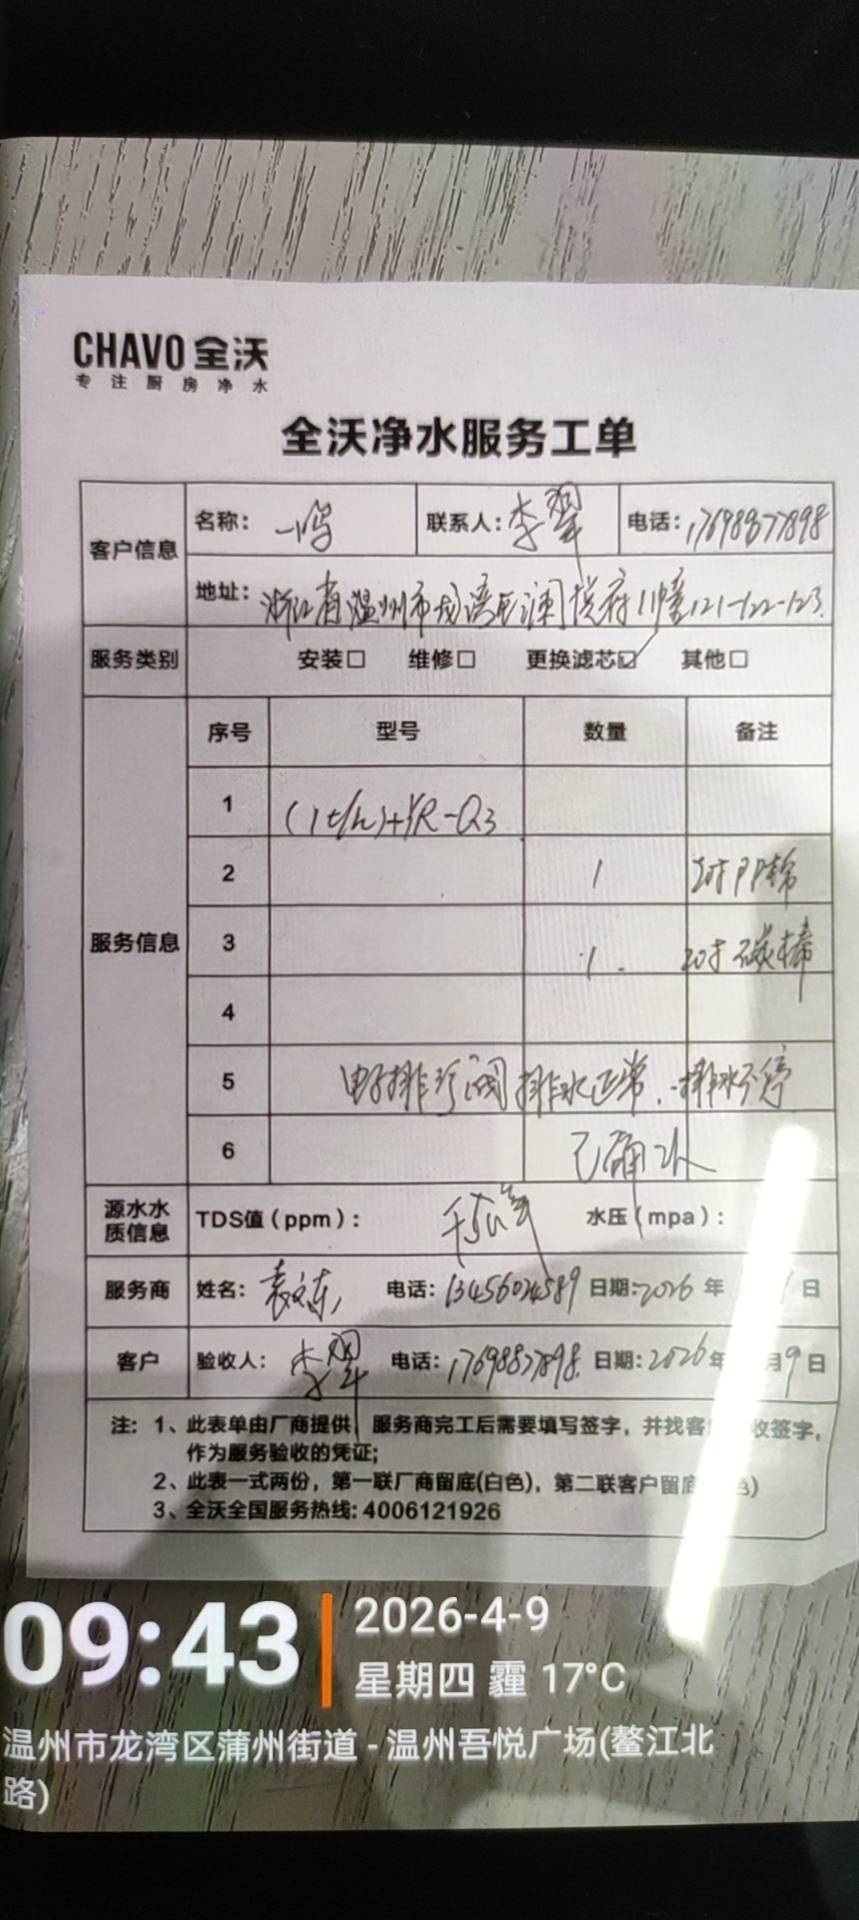 CHAVO 全沃
专注厨房净水
全沃净水服务工单
客户信息 名称: 一鸣 联系人: 李翠 电话: 17698877898
地址: 浙江省温州市龙湾区澜悦府11幢121-122-123
服务类别 安装☐ 维修☐ 更换滤芯☑ 其他☐
服务信息 序号 型号 数量 备注
1 (1t/h)+YR-Q3
2 1 20寸PP棉
3 1 20寸碳棒
4
5 电子排污阀排水正常.排水不停
6 已确认
源水水质信息 TDS值(ppm): 水压(mpa):
服务商 姓名: 袁文东 电话: 13456024589 日期: 2026年 日
客户 验收人: 李翠 电话: 17698877898 日期: 2026年 月9日
注: 1、此表单由厂商提供 服务商完工后需要填写签字，并找客 收签字，
作为服务验收的凭证;
2、此表一式两份，第一联厂商留底(白色)，第二联客户留底 色)
3、全沃全国服务热线: 4006121926
09:43
2026-4-9
星期四 霾 17°C
温州市龙湾区蒲州街道-温州吾悦广场(鳌江北
路)